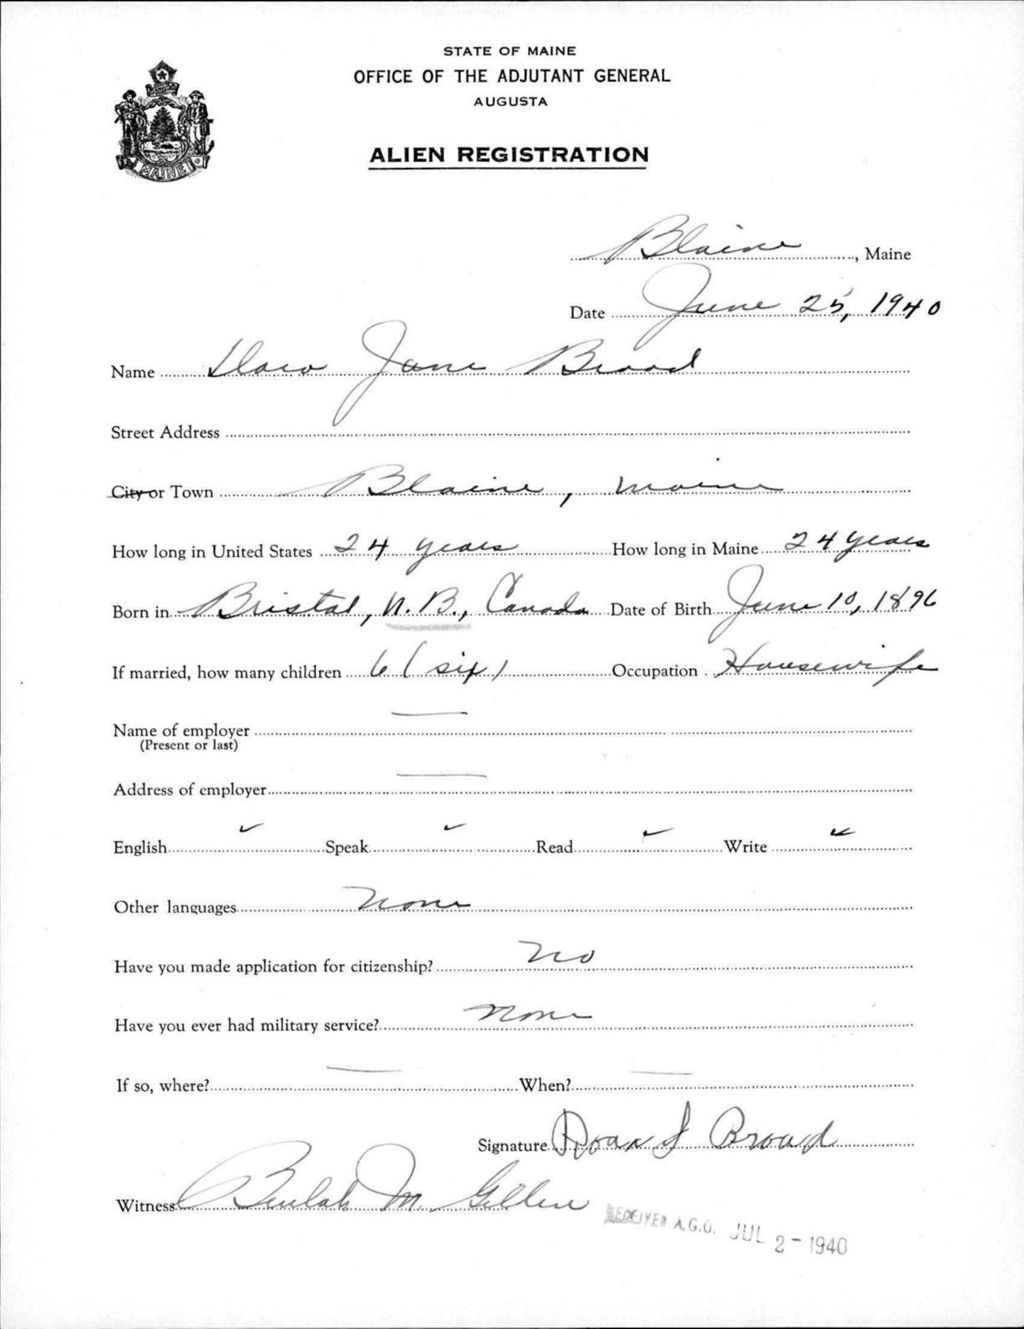 STATE OF MAINE
OFFICE OF THE ADJUTANT GENERAL
AUGUSTA
ALIEN REGISTRATION
MAINE
Blaine, Maine
Date June 25, 1940
Name Jane Broad
Street Address
City or Town Blaine, Maine
How long in United States 24 years How long in Maine 24 years
Born in Bristol, N.B., Canada Date of Birth June 10, 1896
If married, how many children 6 (six) Occupation Housewife
Name of employer —
(Present or last)
Address of employer —
English ✓ Speak ✓ Read ✓ Write ✓
Other languages None
Have you made application for citizenship? No
Have you ever had military service? None
If so, where? — When? —
Signature J Broad
Witness Beulah M. Gillen
RECEIVED A.G.O. JUL 2 - 1940